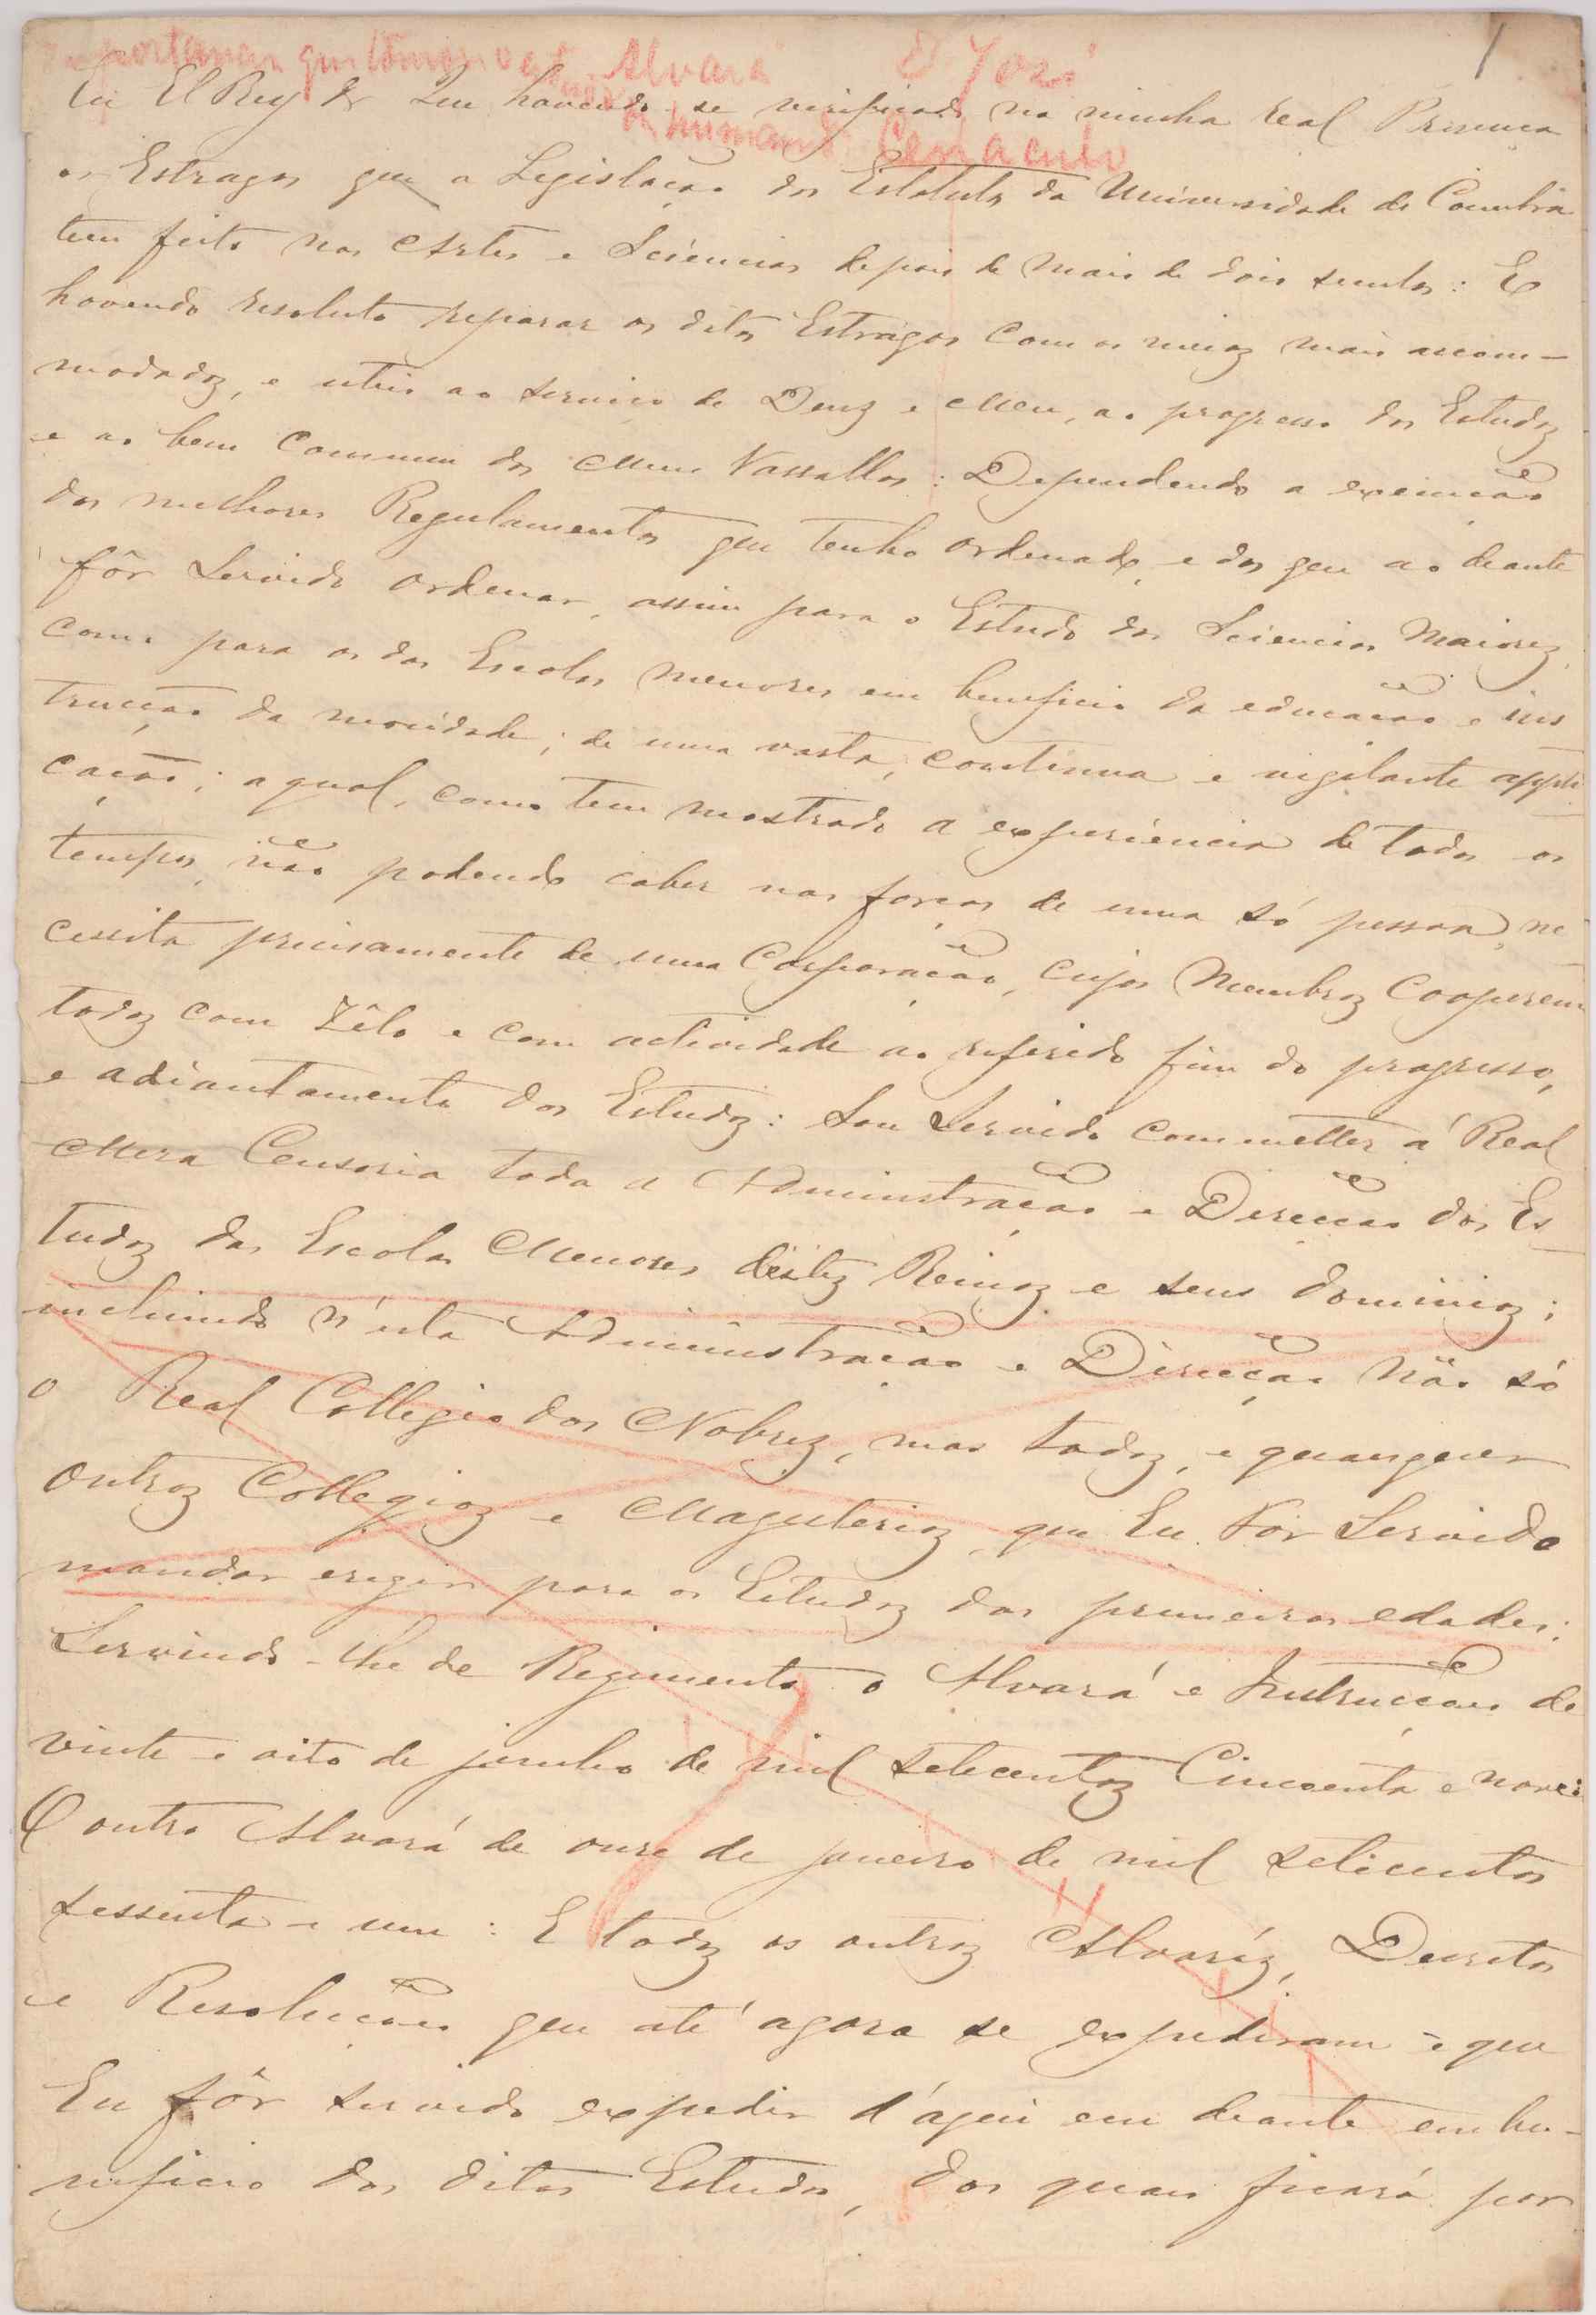 1
Alvará D. José
humano Cenaculo
Eu El Rey &r Que havendo-se verificado na minha real Presença
os Estragos que a Legislação dos Estatutos da Universidade de Coimbra
tem feito nas Artes e Sciencias depois de mais de dois seculos: E
havendo resoluto reparar os ditos Estragos com os meioz mais accom-
modadoz, e uteis ao serviço de Deuz e Meu, ao progresso dos Estudoz
e ao bem Commum dos Meus Vassallos: Dependendo a execução
dos milhores Regulamentos que tenho ordenado, e dos que ao deante
fôr Servido ordenar, assim para o Estudo das Sciencias Maiorez,
como para os das Escolas menores em beneficio da educação e ins
trucção da mocidade; de uma vasta, continua e vigilante appli
cação; a qual, como tem mostrado a experiencia de todos os
tempos, não podendo caber nas forças de uma só pessoa, ne
cessita precisamente de uma Corporação, cujos Membroz Cooperem
todoz com Zêlo e com actividade ao referido fim do progresso,
e adiantamento dos Estudoz: Sou Servido Commetter á Real
Meza Censoria toda a Administração e Direcção dos Es
tudoz das Escolas Menores destez Reinoz e seus dominioz;
incluindo n'esta Administração e Direcção não só
o Real Collegio dos Nobrez, mas todoz, e quaesquer
outroz Collegioz e Magisterioz que Eu For Servido
mandar erigir para os Estudoz das primeiras edades:
Servindo-lhe de Regimento o Alvará e Instrucções de
vinte e oito de junho de mil setecentoz Cincoenta e nove:
O outro Alvará de onze de janeiro de mil setecentos
sessenta e um: E todoz os outroz Alvaráz, Decretos
e Resoluções que até agora se expediram e que
Eu fôr servido expedir d'aqui em deante em be-
neficio dos ditos Estudos, dos quaes ficará por